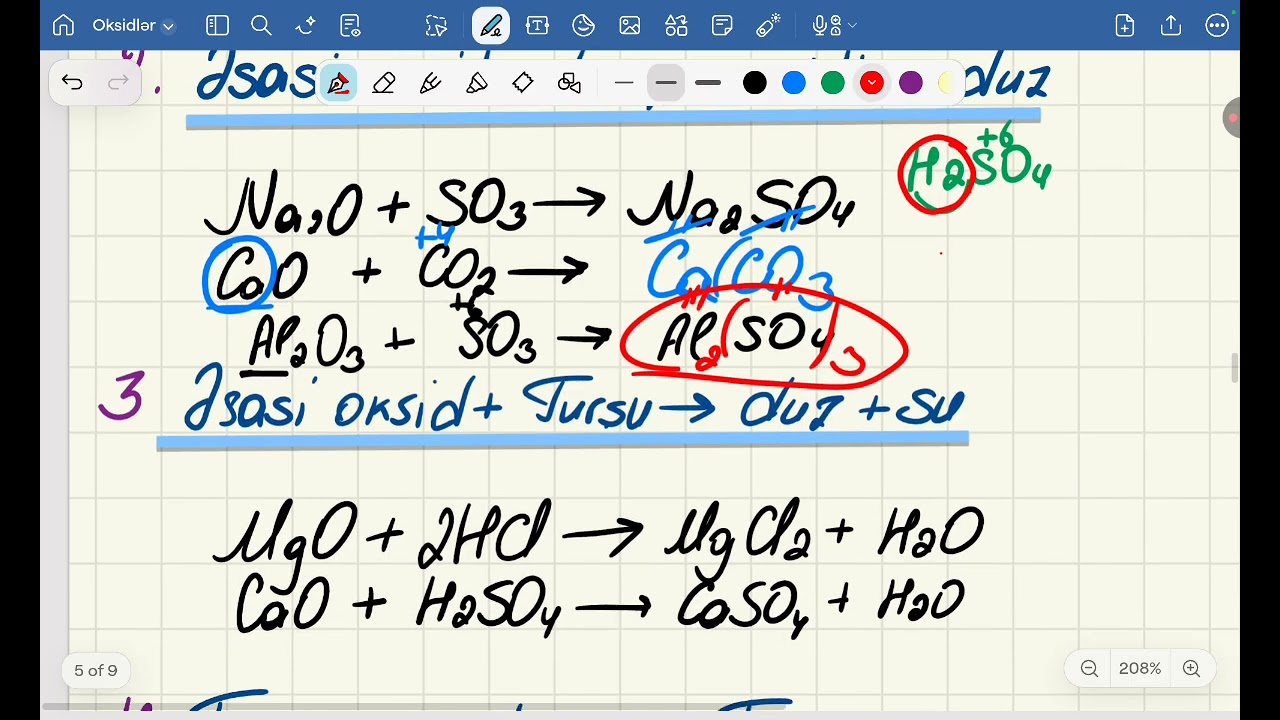 Oksidlər
Əsasi duz
H2SO4 +6
Na2O + SO3 → Na2SO4
CaO + CO2 → Ca(CO3
+4
Al2O3 + SO3 → Al2(SO4)3
+6
3 Əsasi oksid + Turşu → duz + su
MgO + 2HCl → MgCl2 + H2O
CaO + H2SO4 → CaSO4 + H2O
5 of 9
208%